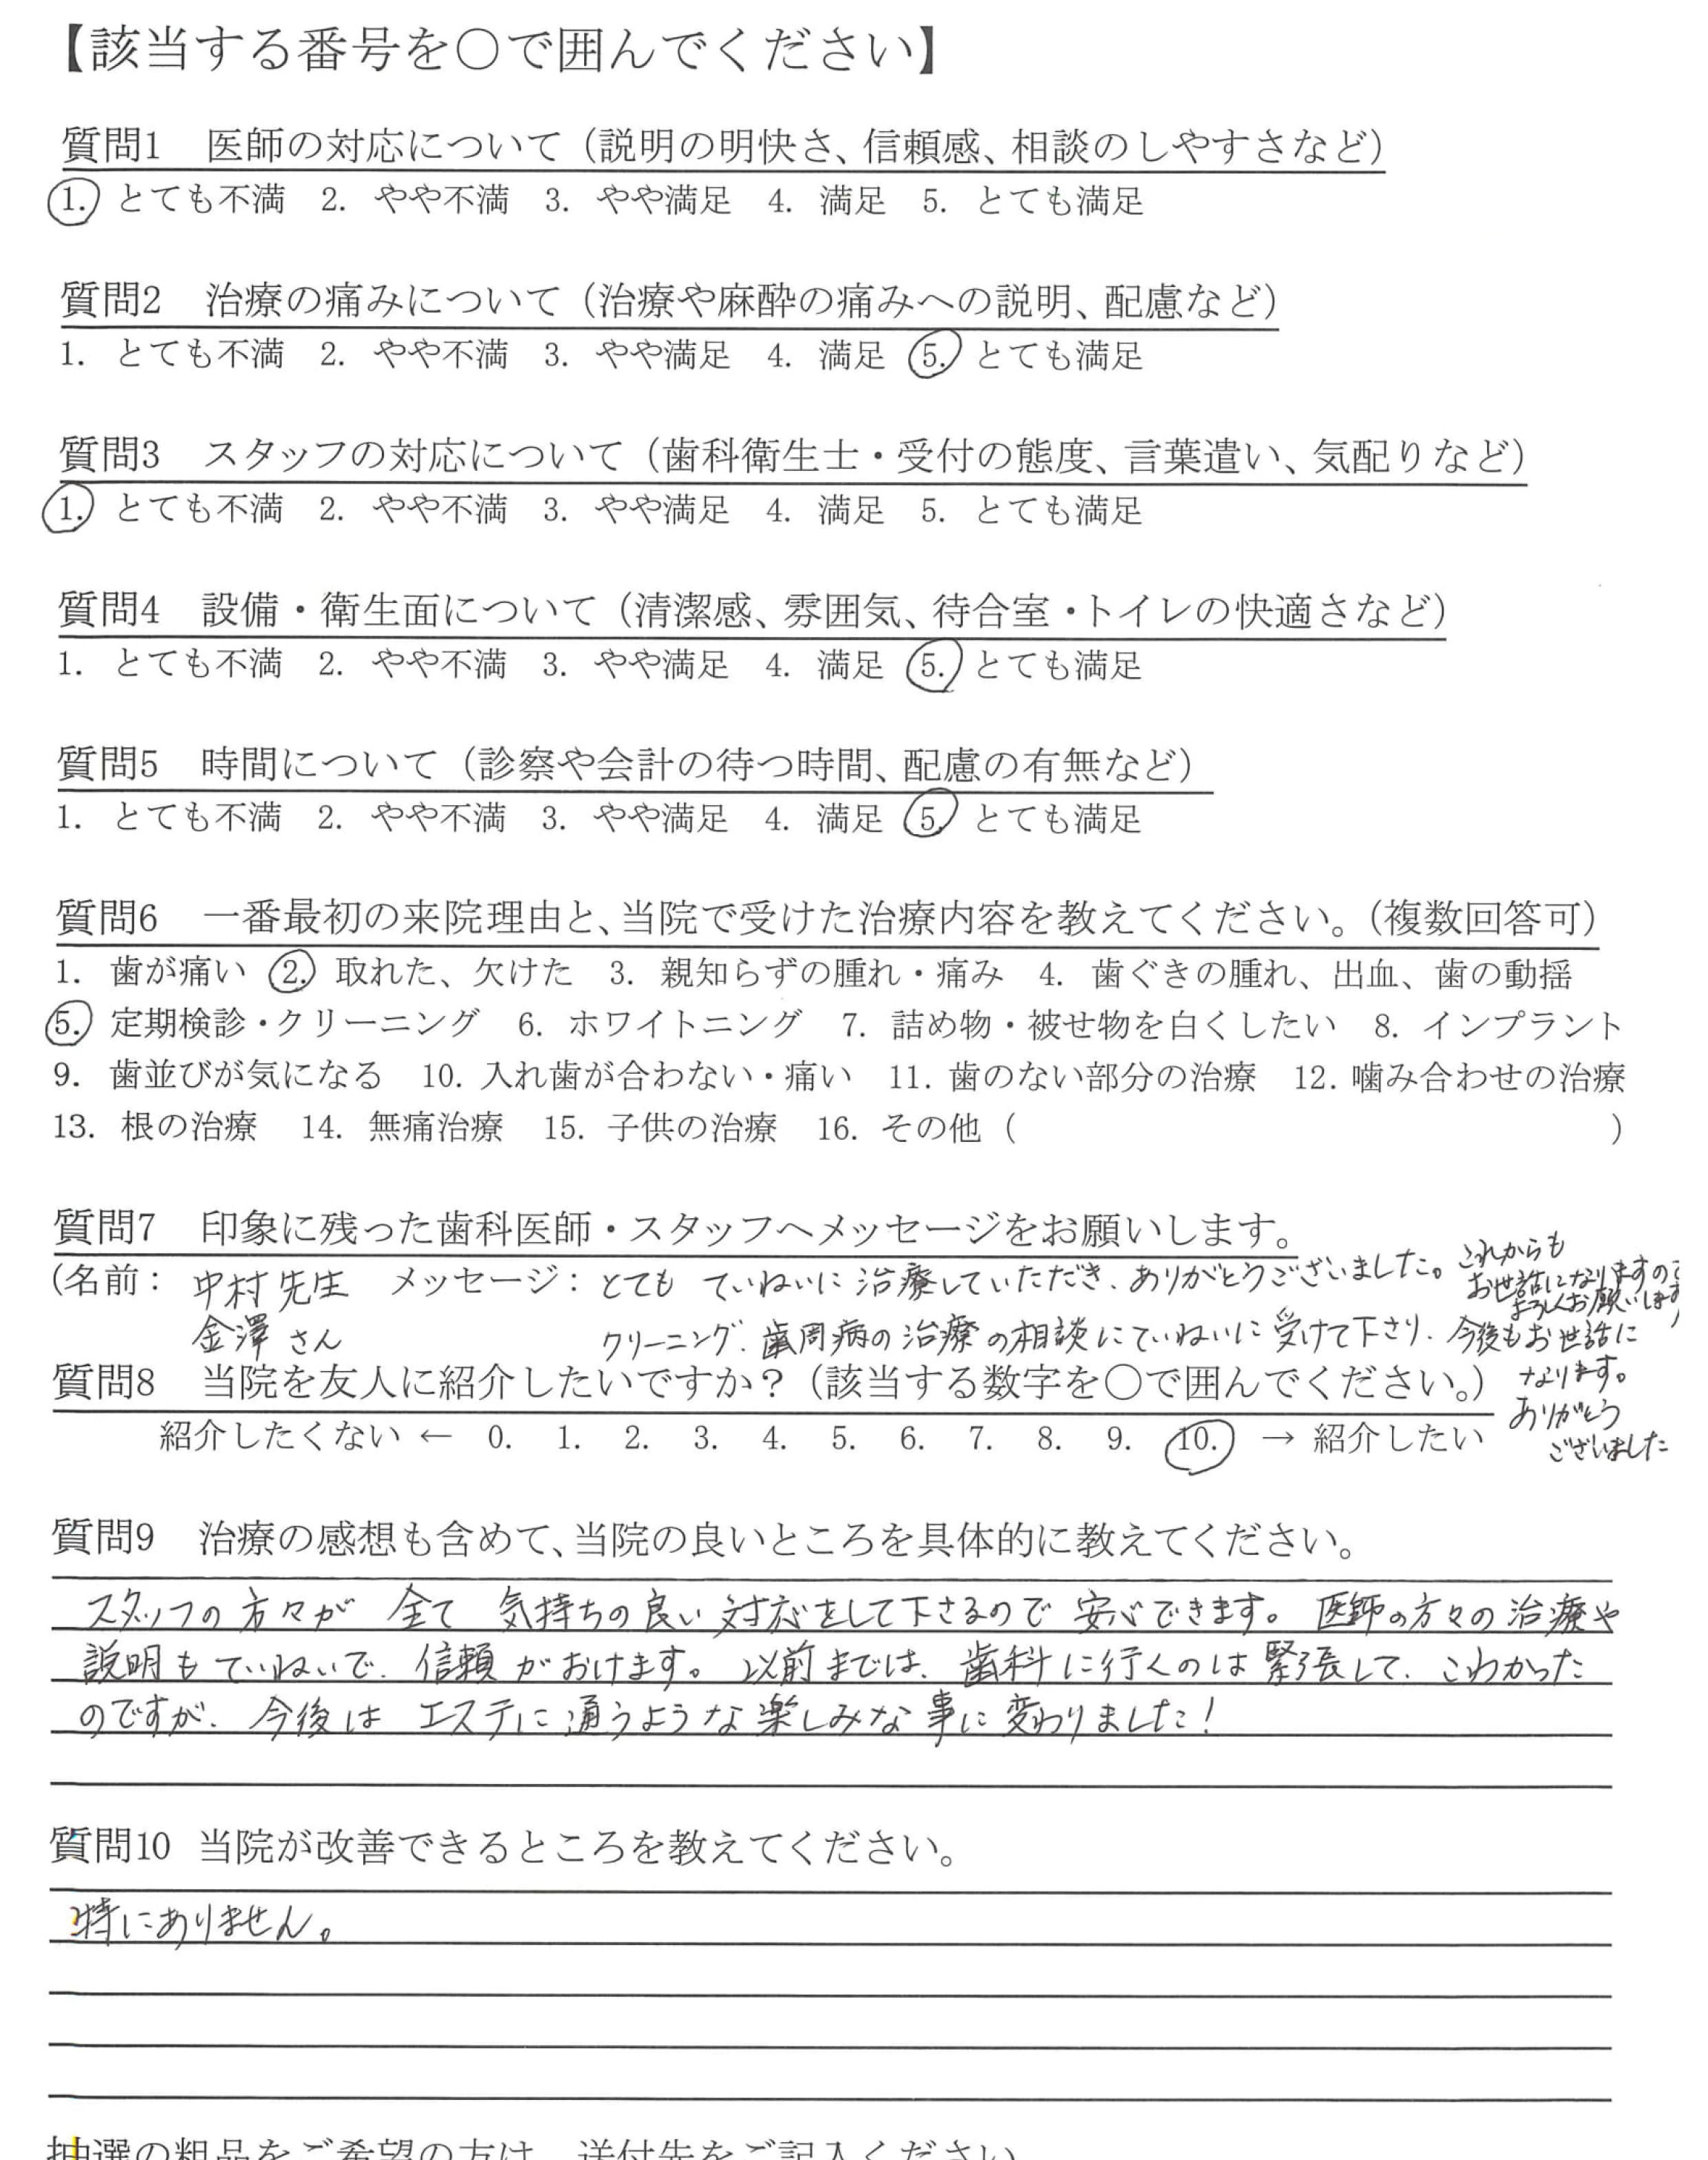 【該当する番号を○で囲んでください】
質問1　医師の対応について（説明の明快さ、信頼感、相談のしやすさなど）
1. とても不満　2. やや不満　3. やや満足　4. 満足　5. とても満足
質問2　治療の痛みについて（治療や麻酔の痛みへの説明、配慮など）
1. とても不満　2. やや不満　3. やや満足　4. 満足　5. とても満足
質問3　スタッフの対応について（歯科衛生士・受付の態度、言葉遣い、気配りなど）
1. とても不満　2. やや不満　3. やや満足　4. 満足　5. とても満足
質問4　設備・衛生面について（清潔感、雰囲気、待合室・トイレの快適さなど）
1. とても不満　2. やや不満　3. やや満足　4. 満足　5. とても満足
質問5　時間について（診察や会計の待つ時間、配慮の有無など）
1. とても不満　2. やや不満　3. やや満足　4. 満足　5. とても満足
質問6　一番最初の来院理由と、当院で受けた治療内容を教えてください。（複数回答可）
1. 歯が痛い　2. 取れた、欠けた　3. 親知らずの腫れ・痛み　4. 歯ぐきの腫れ、出血、歯の動揺
5. 定期検診・クリーニング　6. ホワイトニング　7. 詰め物・被せ物を白くしたい　8. インプラント
9. 歯並びが気になる　10. 入れ歯が合わない・痛い　11. 歯のない部分の治療　12. 噛み合わせの治療
13. 根の治療　14. 無痛治療　15. 子供の治療　16. その他（　　　）
質問7　印象に残った歯科医師・スタッフへメッセージをお願いします。
（名前：中村先生　メッセージ：とても ていねいに 治療していただき、ありがとうございました。これからも
お世話になりますので
よろしくお願いします）
金澤さん　クリーニング、歯周病の治療の相談にていねいに受けて下さり、今後もお世話に
なります。
ありがとう
ございました
質問8　当院を友人に紹介したいですか？（該当する数字を○で囲んでください。）
紹介したくない ← 0. 1. 2. 3. 4. 5. 6. 7. 8. 9. 10. → 紹介したい
質問9　治療の感想も含めて、当院の良いところを具体的に教えてください。
スタッフの方々が 全て 気持ちの良い対応をして下さるので 安心できます。医師の方々の治療や
説明もていねいで、信頼がおけます。以前までは、歯科に行くのは緊張して、こわかった
のですが、今後は エステに通うような楽しみな事に変わりました！
質問10 当院が改善できるところを教えてください。
特にありません。
抽選の粗品をご希望の方は、送付先をご記入ください